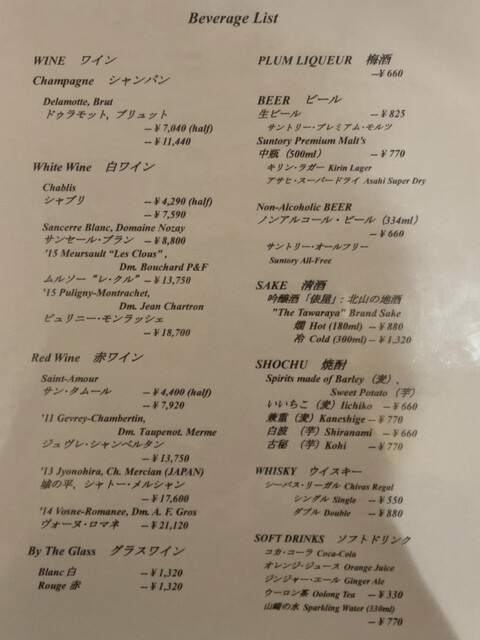 Beverage List
WINE ワイン
Champagne シャンパン
Delamotte, Brut
ドゥラモット, ブリュット
--￥7,040 (half)
--￥11,440
White Wine 白ワイン
Chablis
シャブリ --￥4,290 (half)
--￥7,590
Sancerre Blanc, Domaine Nozay
サンセール・ブラン --￥8,800
'15 Meursault “Les Clous” ,
Dm. Bouchard P&F
ムルソー “レ・クル” --￥13,750
'15 Puligny-Montrachet,
Dm. Jean Chartron
ピュリニー・モンラッシェ
--￥18,700
Red Wine 赤ワイン
Saint-Amour
サン・タムール --￥4,400 (half)
--￥7,920
'11 Gevrey-Chambertin,
Dm. Taupenot. Merme
ジュヴレ・シャンベルタン
--￥13,750
'13 Jyonohira, Ch. Mercian (JAPAN)
城の平、シャトー・メルシャン
--￥17,600
'14 Vosne-Romanee, Dm. A. F. Gros
ヴォーヌ・ロマネ --￥21,120
By The Glass グラスワイン
Blanc 白 --￥1,320
Rouge 赤 --￥1,320
PLUM LIQUEUR 梅酒
--￥660
BEER ビール
生ビール --￥825
サントリー・プレミアム・モルツ
Suntory Premium Malt's
中瓶 (500ml) --￥770
キリン・ラガー Kirin Lager
アサヒ・スーパードライ Asahi Super Dry
Non-Alcoholic BEER
ノンアルコール・ビール (334ml)
--￥660
サントリー・オールフリー
Suntory All-Free
SAKE 清酒
吟醸酒「俵屋」: 北山の地酒
"The Tawaraya" Brand Sake
燗 Hot (180ml) --￥880
冷 Cold (300ml) --￥1,320
SHOCHU 焼酎
Spirits made of Barley (麦) ,
Sweet Potato (芋)
いいちこ (麦) Iichiko --￥660
兼重 (麦) Kaneshige --￥770
白波 (芋) Shiranami --￥660
古秘 (芋) Kohi --￥770
WHISKY ウイスキー
シーバス・リーガル Chivas Regal
シングル Single --￥550
ダブル Double --￥880
SOFT DRINKS ソフトドリンク
コカ・コーラ Coca-Cola
オレンジ・ジュース Orange Juice
ジンジャー・エール Ginger Ale
ウーロン茶 Oolong Tea --￥330
山崎の水 Sparkling Water (330ml)
--￥770